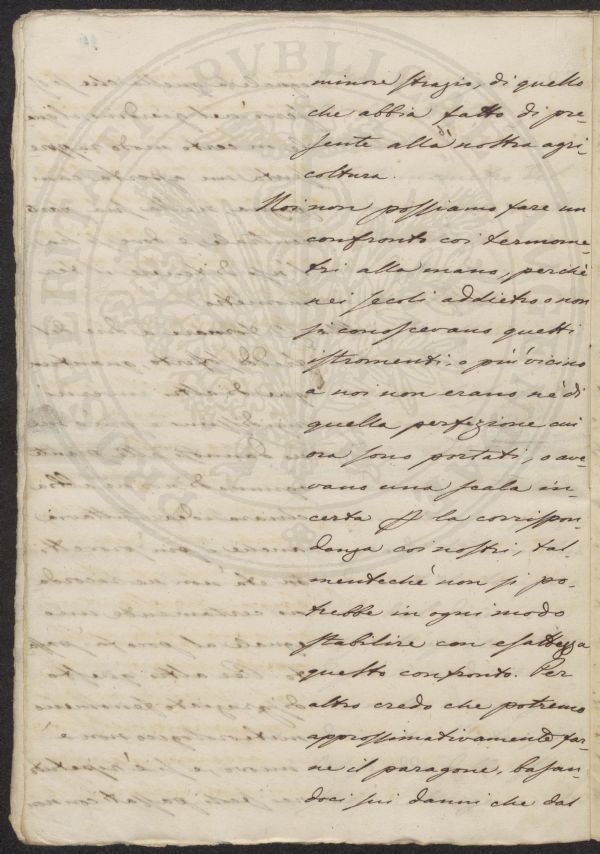 minore strazio, di quello
che abbia fatto di pre-
sente alla nostra agri-
coltura.
Noi non possiamo fare un
confronto coi termome-
tri alla mano, perchè
nei secoli addietro o non
si conoscevano questi
istromenti, o più vicino
a noi non erano nè di
quella perfezione cui
ora sono portati, o ave-
vano una scala in-
certa p la corrispon-
danza coi nostri, tal-
mentechè non si po-
trebbe in ogni modo
stabilire con esattezza
questo confronto. Per
altro credo che potremo
approssimativamente far-
ne il paragone, basan-
doci sui danni che dal
PUBLICAE
PROSPERITATI